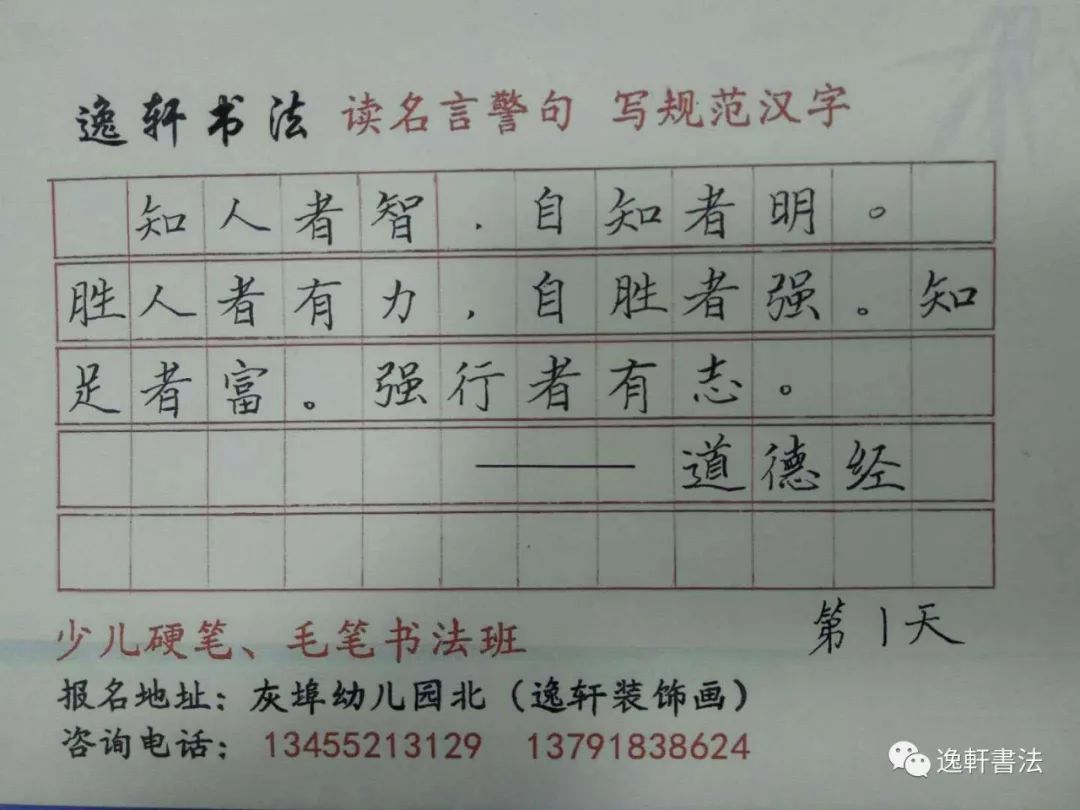 逸轩书法 读名言警句 写规范汉字
知人者智，自知者明。
胜人者有力，自胜者强。知
足者富。强行者有志。
——道德经
第1天
少儿硬笔、毛笔书法班
报名地址：灰埠幼儿园北（逸轩装饰画）
咨询电话：13455213129 13791838624
逸軒書法